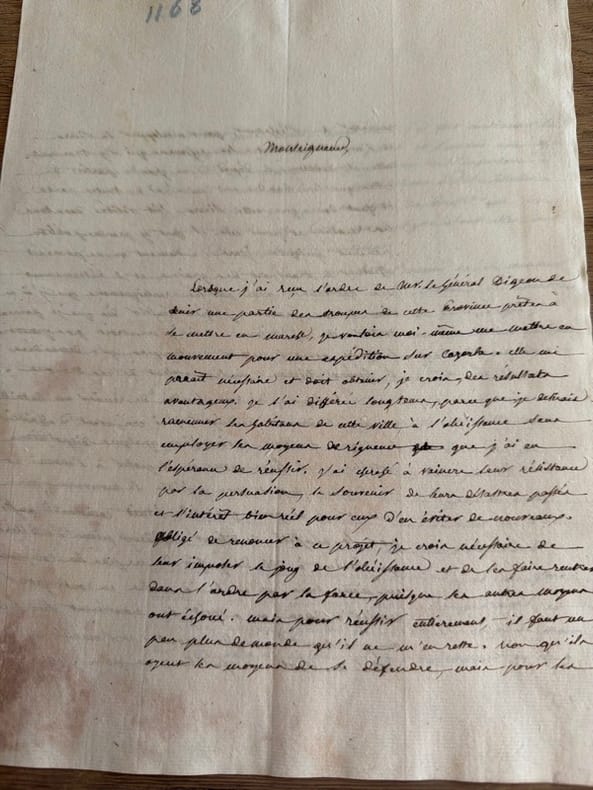 1168
Monseigneur,
Lorsque j'ai reçu l'ordre de Mr. le Général Digeon de
tenir une partie des troupes de cette Province prêtes à
se mettre en marche, je voulais moi-même me mettre en
mouvement pour une expédition sur Cazorla. elle me
paraît nécessaire et doit obtenir, je crois, des résultats
avantageux. je l'ai différée longtems, parce que je désirais
ramener les habitans de cette ville à l'obéissance sans
employer les moyens de rigueur que j'ai eu
l'espérance de réussir. j'ai cherché à vaincre leur résistance
par la persuasion, le souvenir de leurs désastres passés
et l'intérêt bien réel pour eux d'en éviter de nouveaux.
obligé de renoncer à ce projet, je crois nécessaire de
leur imposer le joug de l'obéissance et de les faire rentrer
dans l'ordre par la force, puisque les autres moyens
ont échoué. mais pour réussir entièrement il faut un
peu plus de monde qu'il ne m'en reste. non qu'ils
ayent les moyens de se défendre, mais pour les